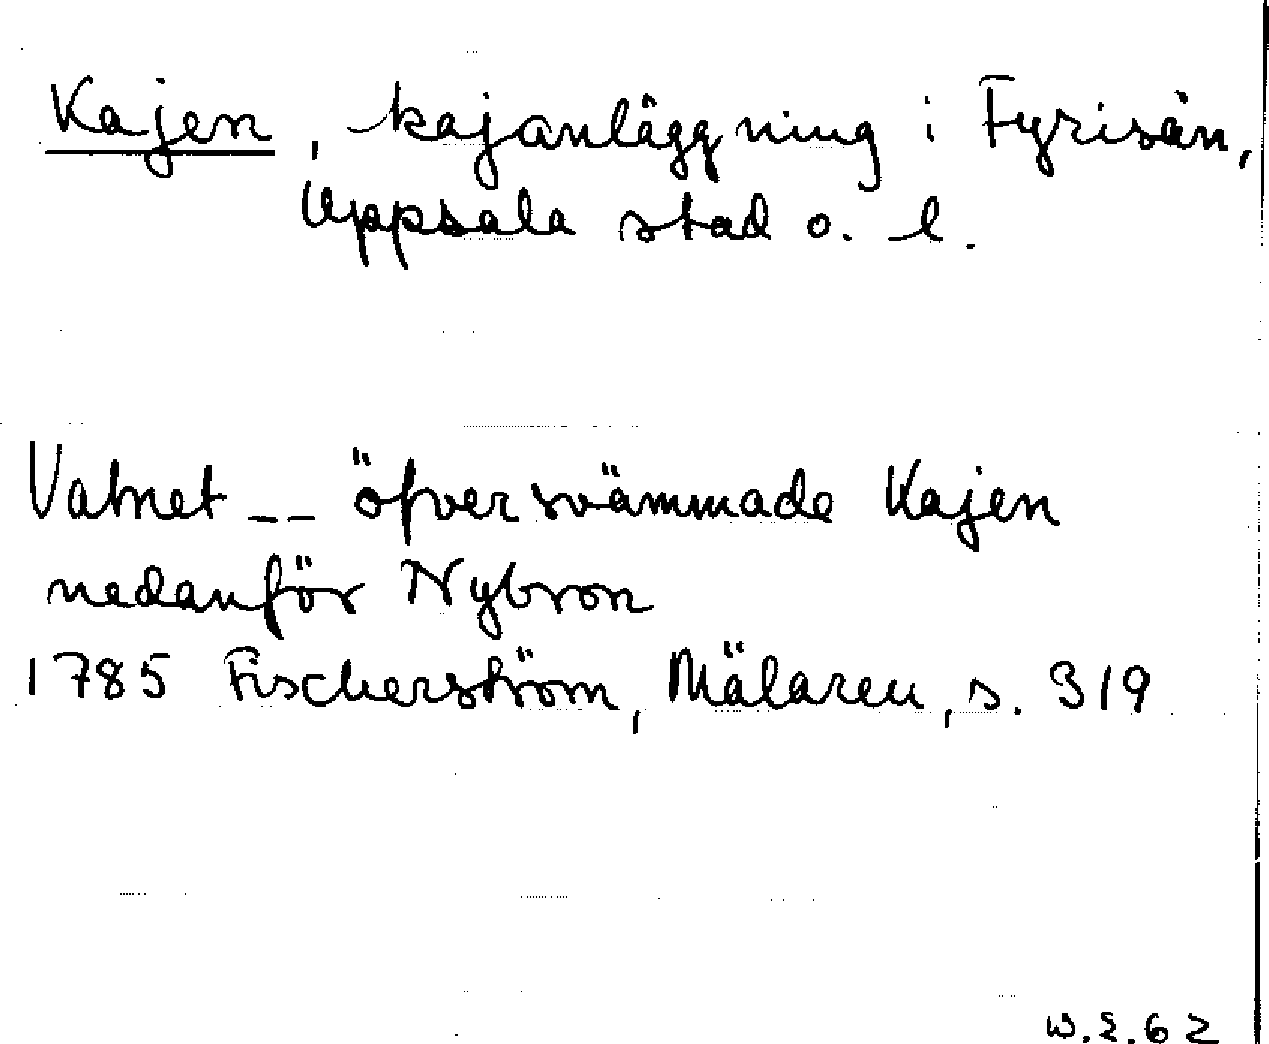 Kajen, kajanläggning i Fyrisån,
Uppsala stad o. l.
Vatnet -- öfversvämmade Kajen
nedanför Nybron
1785 Fischerström, Mälaren, s. 319
W.E.62